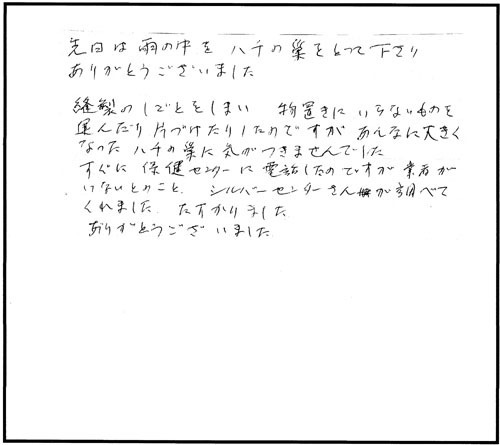 先日は雨の中を ハチの巣をとって下さり
ありがとうございました
縫製のしごとをしまい 物置きに いらないものを
運んだり 片づけたりしたのですが あんなに大きく
なった ハチの巣に気がつきませんでした
すぐに 保健センターに電話したのですが 業者が
いないとのこと、 シルバーセンターさんが調べて
くれました たすかりました
ありがとうございました